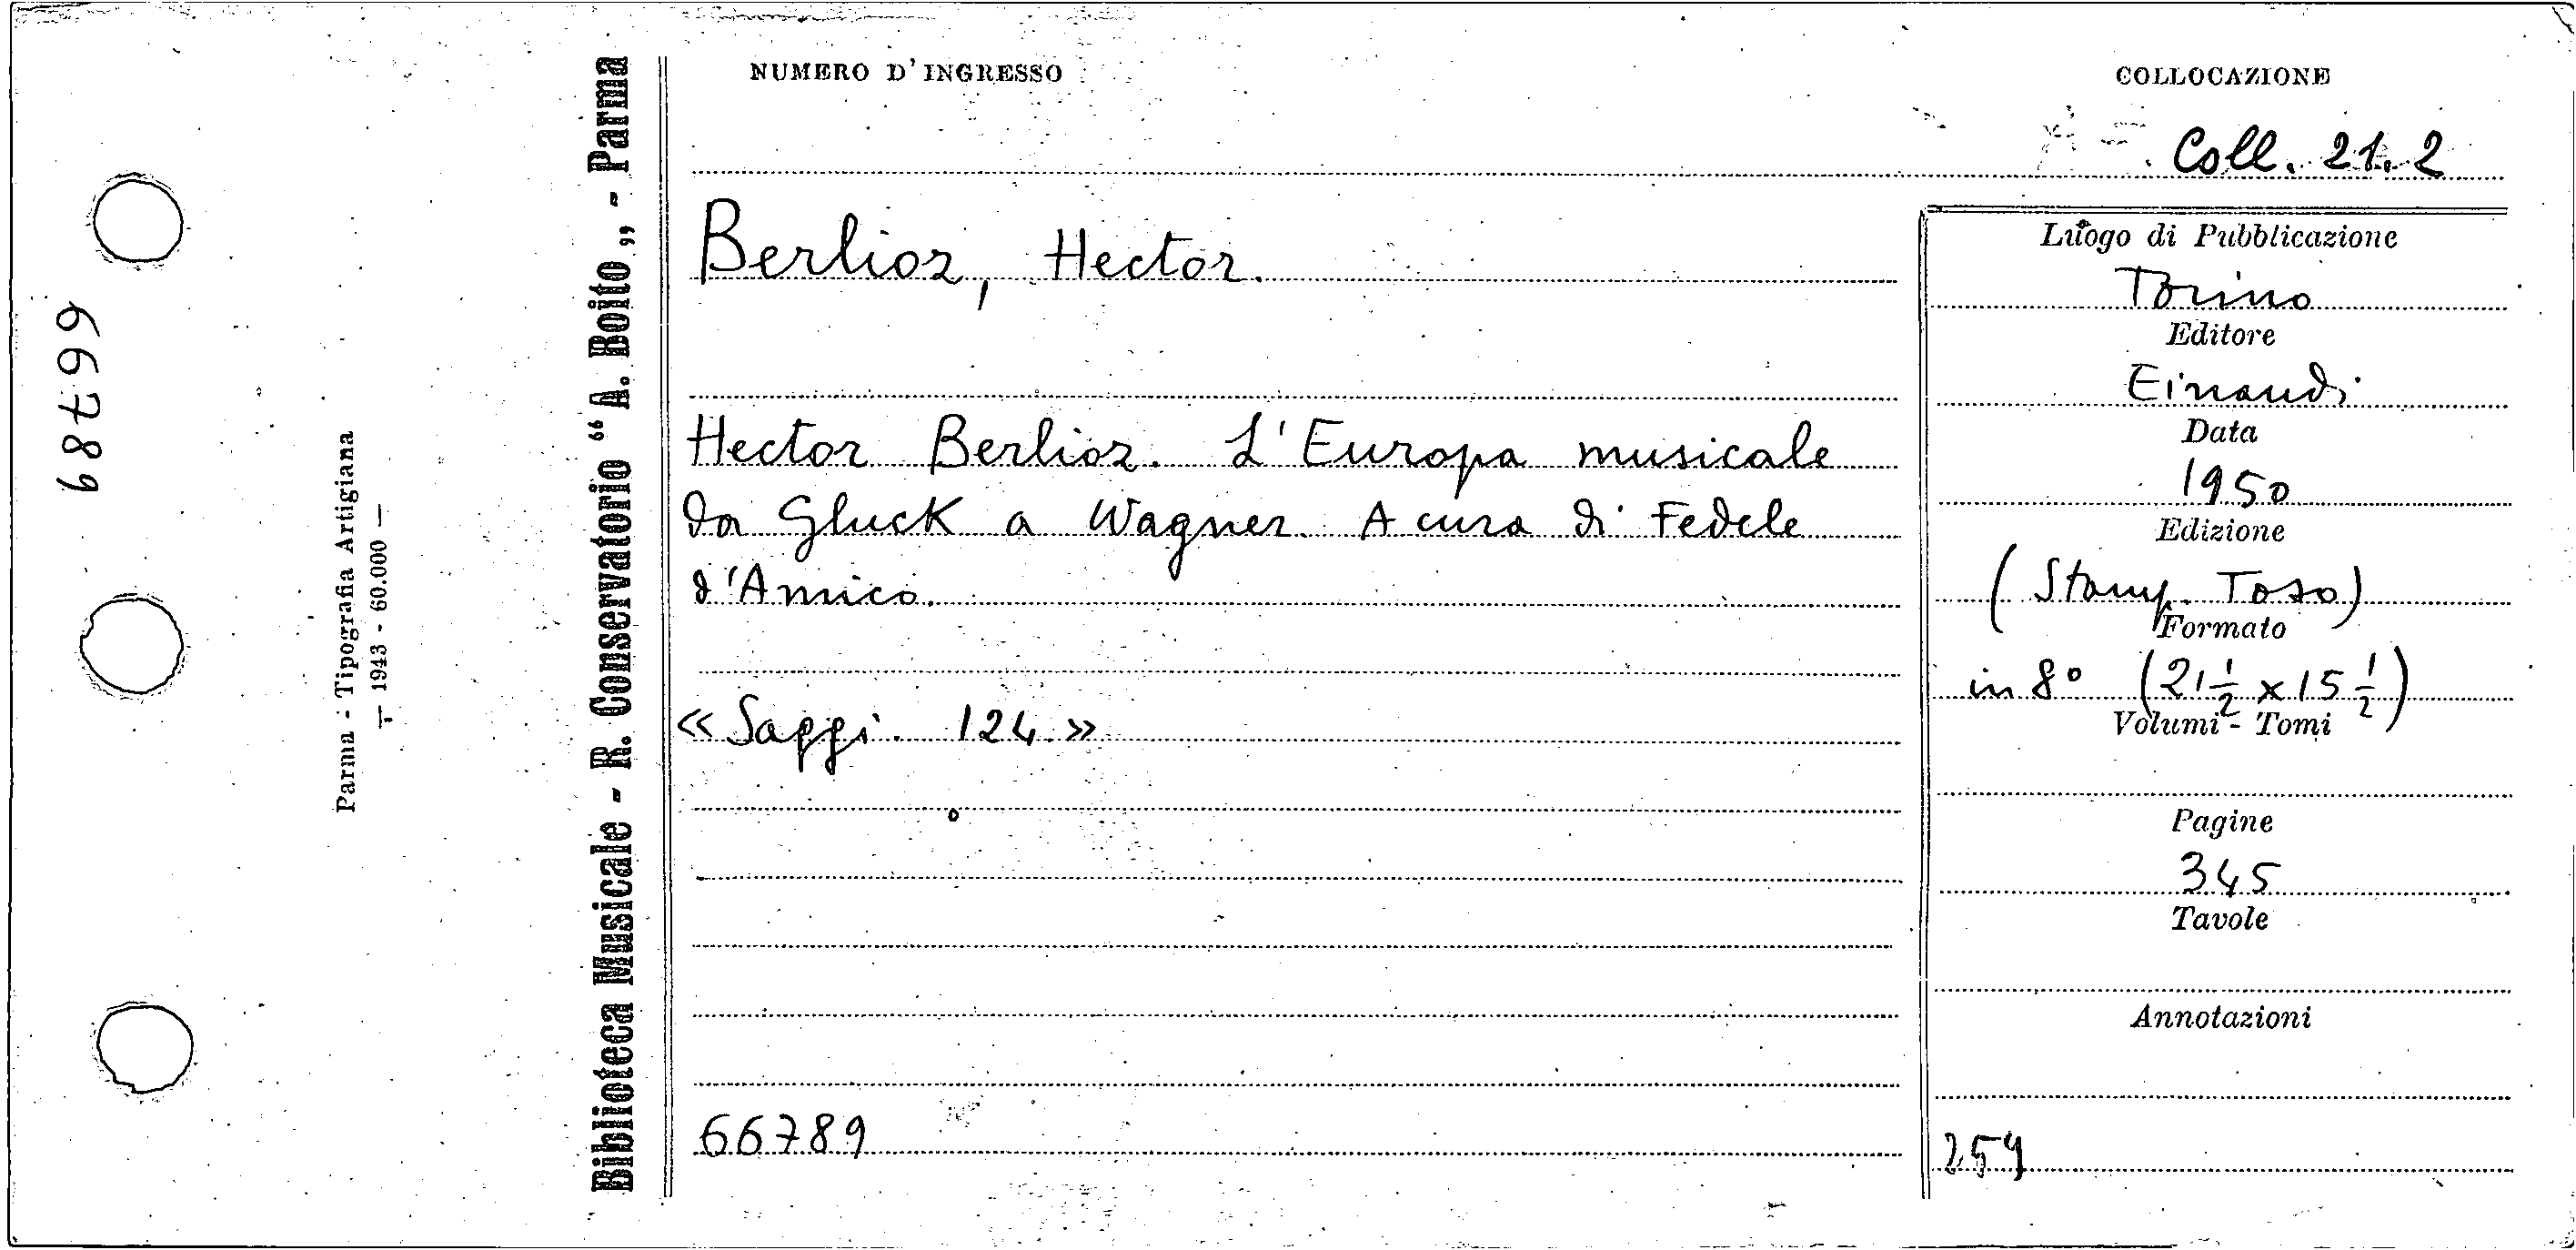 66789
Parma - Tipografia Artigiana
— 1943 - 60.000 —
Biblioteca Musicale - R. Conservatorio “A. Boito„ - Parma
NUMERO D'INGRESSO
COLLOCAZIONE
Coll. 21.2
Berlioz, Hector.
Hector Berlioz. L'Europa musicale
da Gluck a Wagner. A cura di Fedele
d'Amico.
«Saggi. 124.»
66789
Luogo di Pubblicazione
Torino
Editore
Einaudi
Data
1950
Edizione
(Stamp. Toso)
Formato
in 8° (21 1/2 x 15 1/2)
Volumi - Tomi
Pagine
345
Tavole
Annotazioni
259